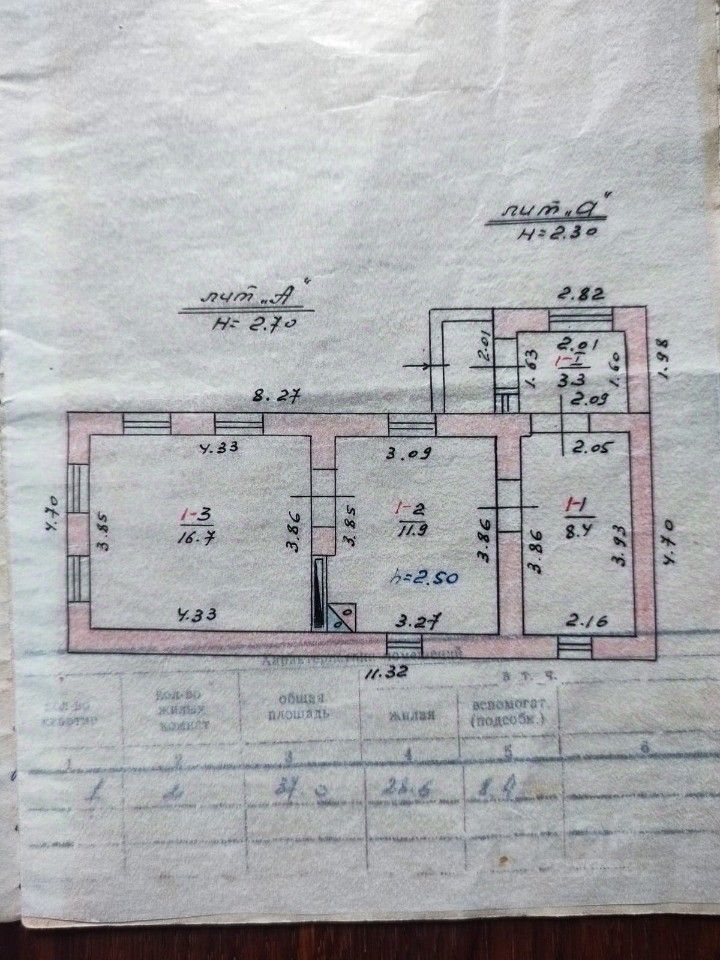 лит „а"
H=2.30
лит „А"
H= 2.70
2.82
2.01
2.01
1.63
1-I
3.3
1.60
1.98
2.09
8.27
4.33
3.09
2.05
4.70
3.85
1-3
16.7
3.86
3.85
1-2
11.9
3.86
3.86
1-1
8.4
3.93
4.70
h=2.50
4.33
3.27
2.16
11.32
в т. ч.
кол-во
жилых
комнат
общая
площадь
жилая
вспомогат.
(подсобн.)
1 2 3 4 5 6
1 2 37.0 28.6 8.4